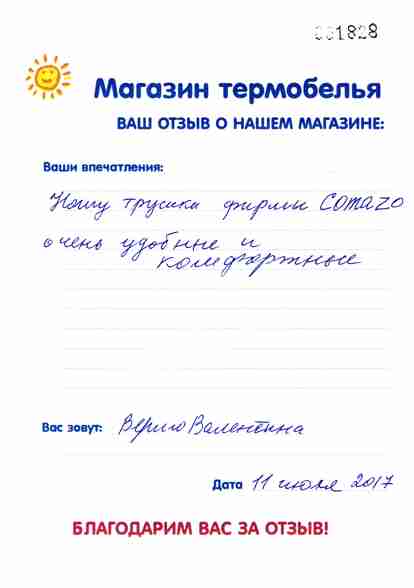 001828
Магазин термобелья
ВАШ ОТЗЫВ О НАШЕМ МАГАЗИНЕ:
Ваши впечатления:
Ношу трусики фирмы COMAZO
очень удобные и
комфортные
Вас зовут: Валентина
Дата 11 июля 2017
БЛАГОДАРИМ ВАС ЗА ОТЗЫВ!